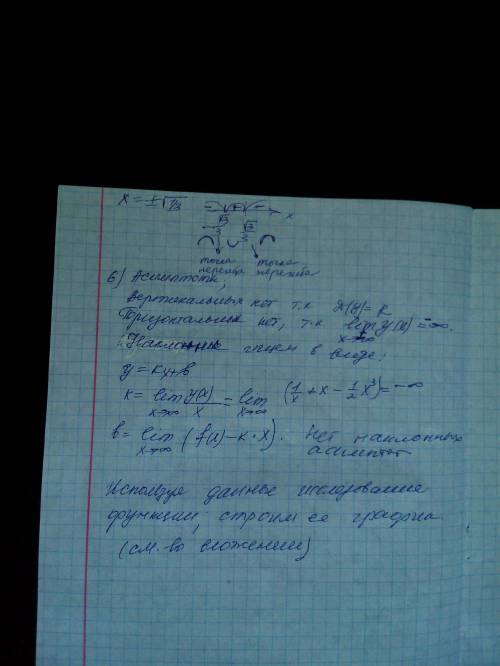 x = ±√1/3 − + − x
−√3/3 √3/3
точка перегиба точка перегиба
6) Асимптоты;
Вертикальных нет т.к D(y)=R
Горизонтальных нет, т.к lim y(x) = −∞.
x→∞
Наклонные ищем в виде:
y = kx+b
k = lim y(x)/x = lim (1/x + x − 1/2 x³) = −∞
x→∞ x→∞
b = lim (f(x) − k·x). Нет наклонных
x→∞ асимптот
Используя данные исследования
функции, строим ее график.
(см. во вложении)